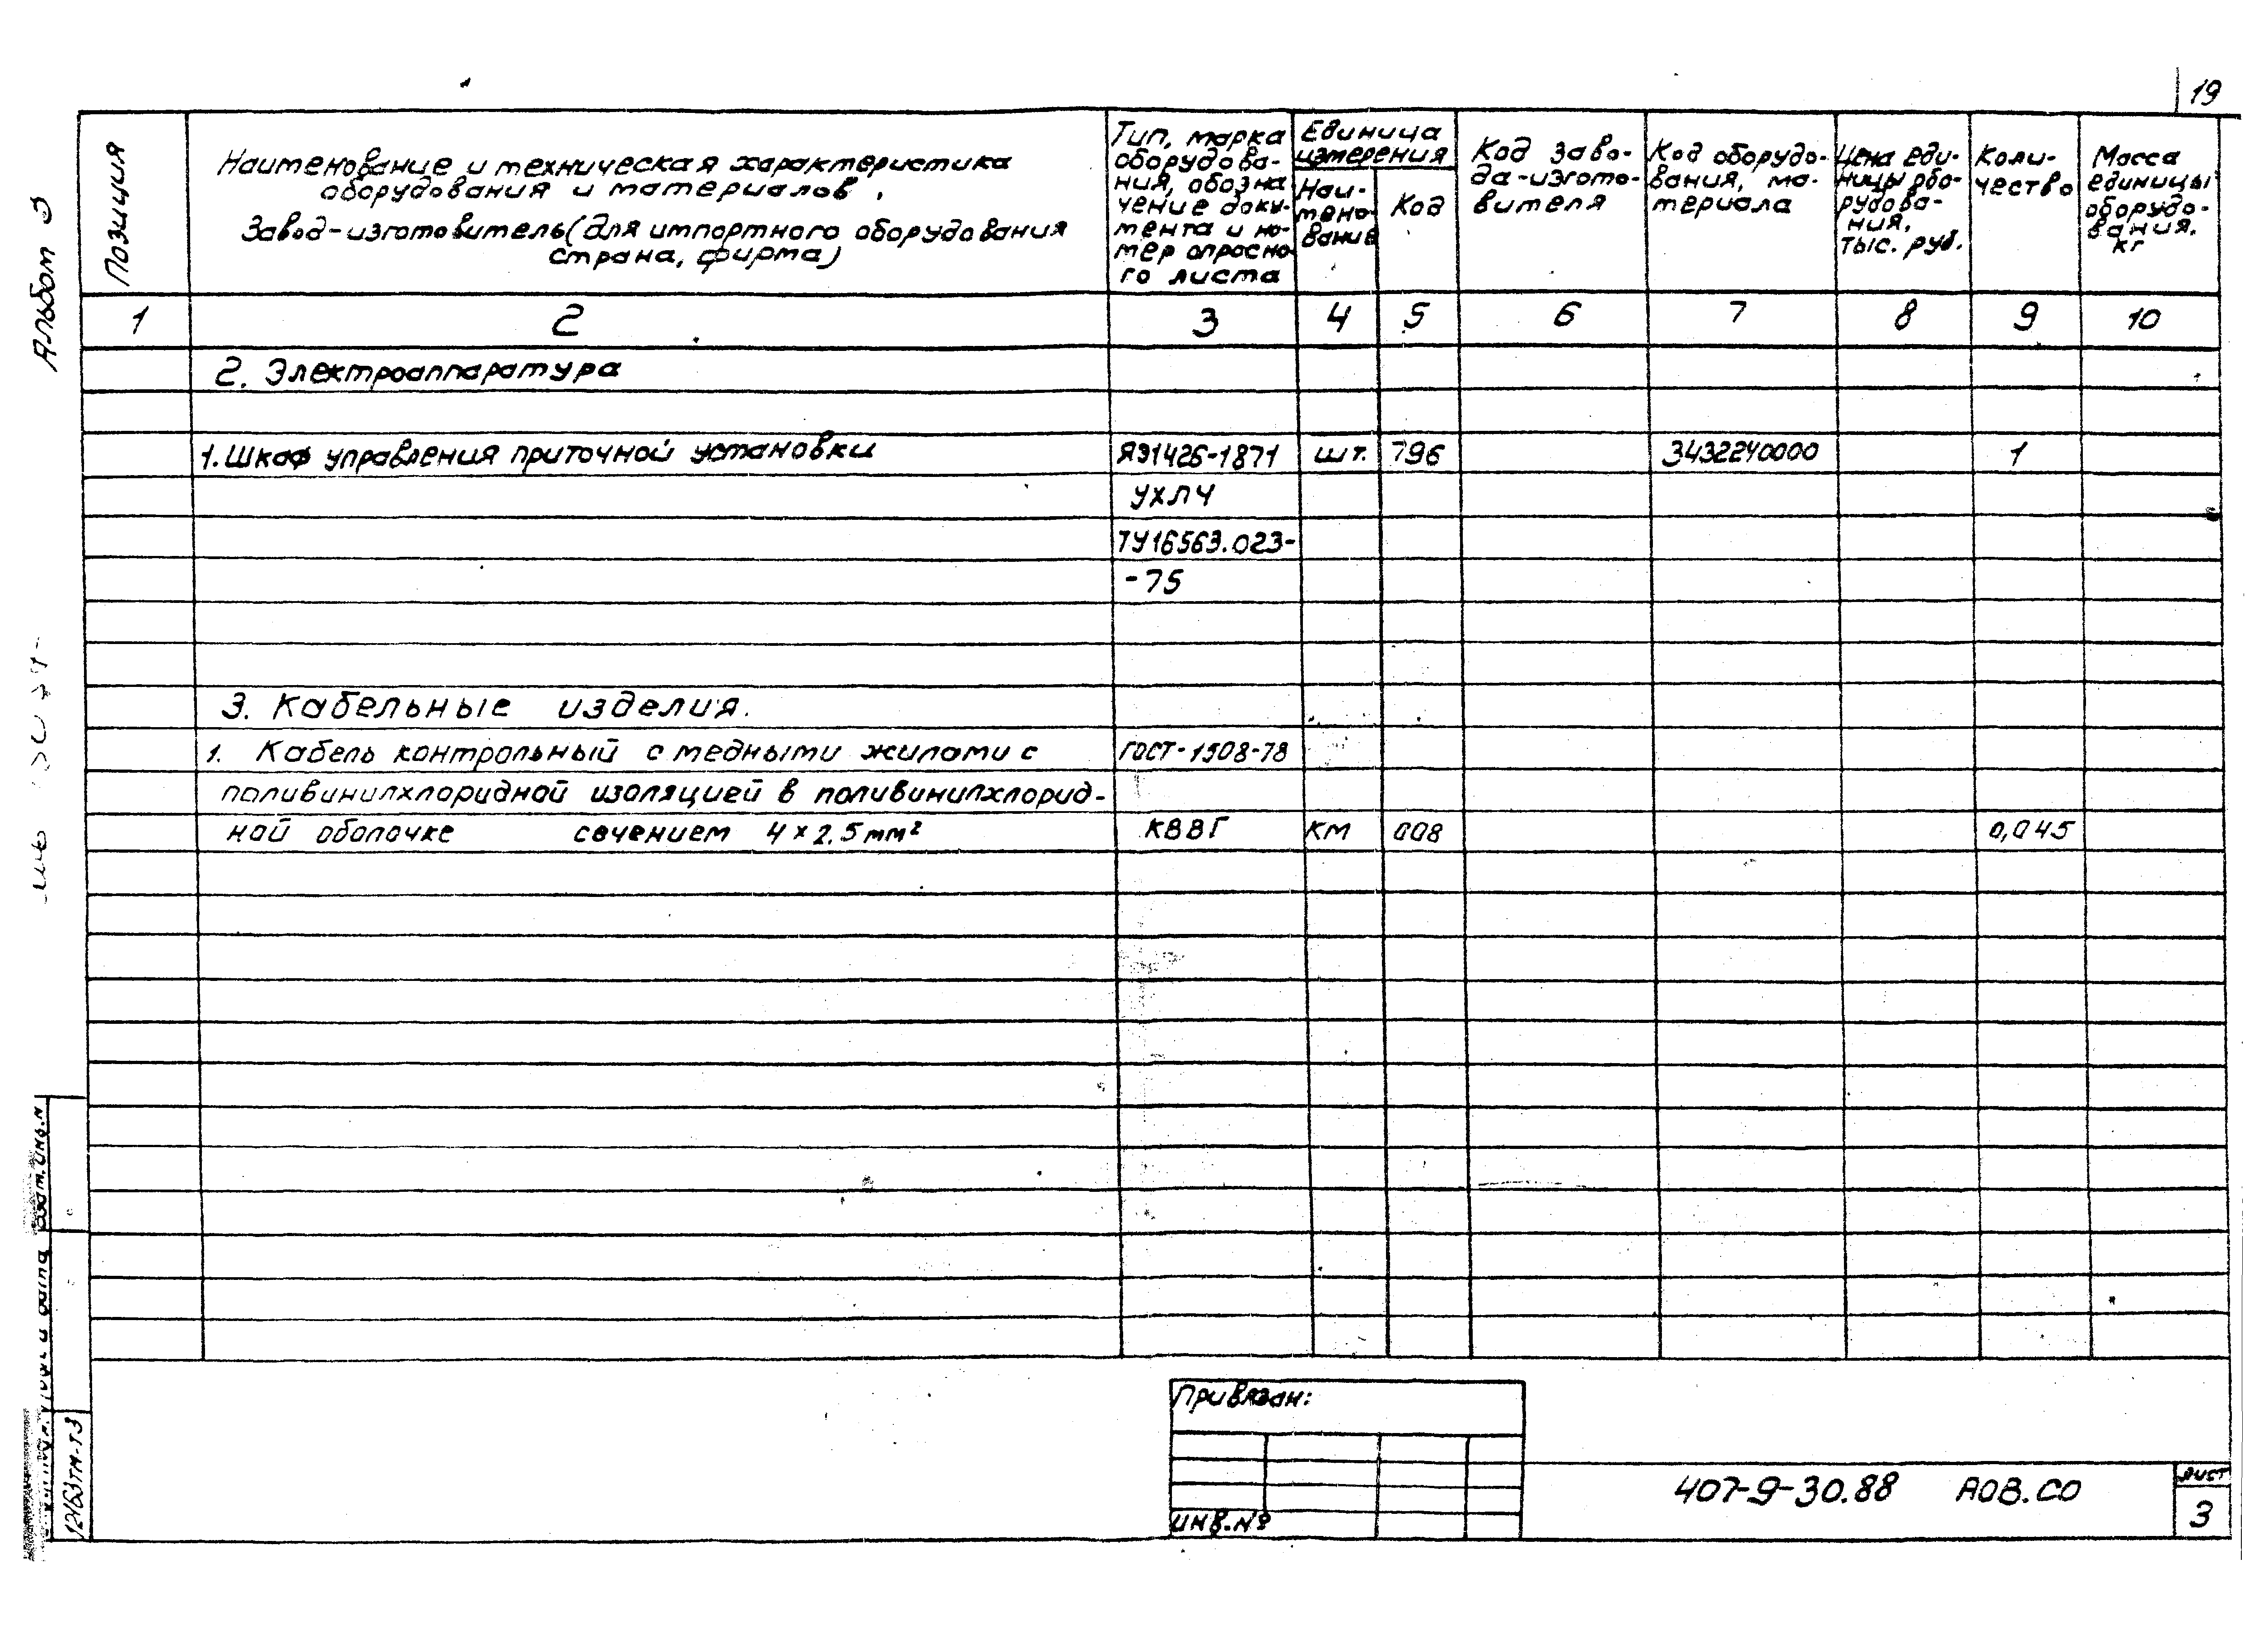 19
Альбом 3
Позиция
Наименование и техническая характеристика
оборудования и материалов.
Завод-изготовитель (для импортного оборудования
страна, фирма)
Тип, марка
оборудова-
ния, обозна
чение доку-
мента и но-
мер опросно
го листа
Единица
измерения
Наи-
мено-
вание
Код
Код заво-
да-изгото-
вителя
Код оборудо-
вания, ма-
териала
Цена еди-
ницы обо-
рудова-
ния,
тыс. руб.
Коли-
чество
Масса
единицы
оборудо-
вания,
кг
1 2 3 4 5 6 7 8 9 10
2. Электроаппаратура
1. Шкаф управления приточной установки ЯЭ1426-1871 шт. 796 3432240000 1
УХЛ4
ТУ16563.023-
-75
3. Кабельные изделия.
1. Кабель контрольный с медными жилами с ГОСТ-1508-78
поливинилхлоридной изоляцией в поливинилхлорид-
ной оболочке сечением 4×2.5мм² КВВГ КМ 008 0,045
Взам. инв. N
и дата
12463ТМ-Т3
Привязан:
инв. №
407-9-30.88 АОВ.СО
лист
3